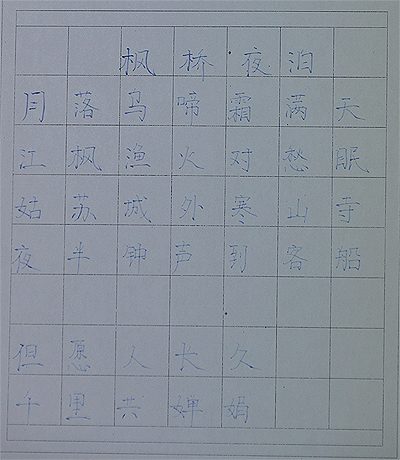 枫桥夜泊
月落乌啼霜满天
江枫渔火对愁眠
姑苏城外寒山寺
夜半钟声到客船
但愿人长久
千里共婵娟